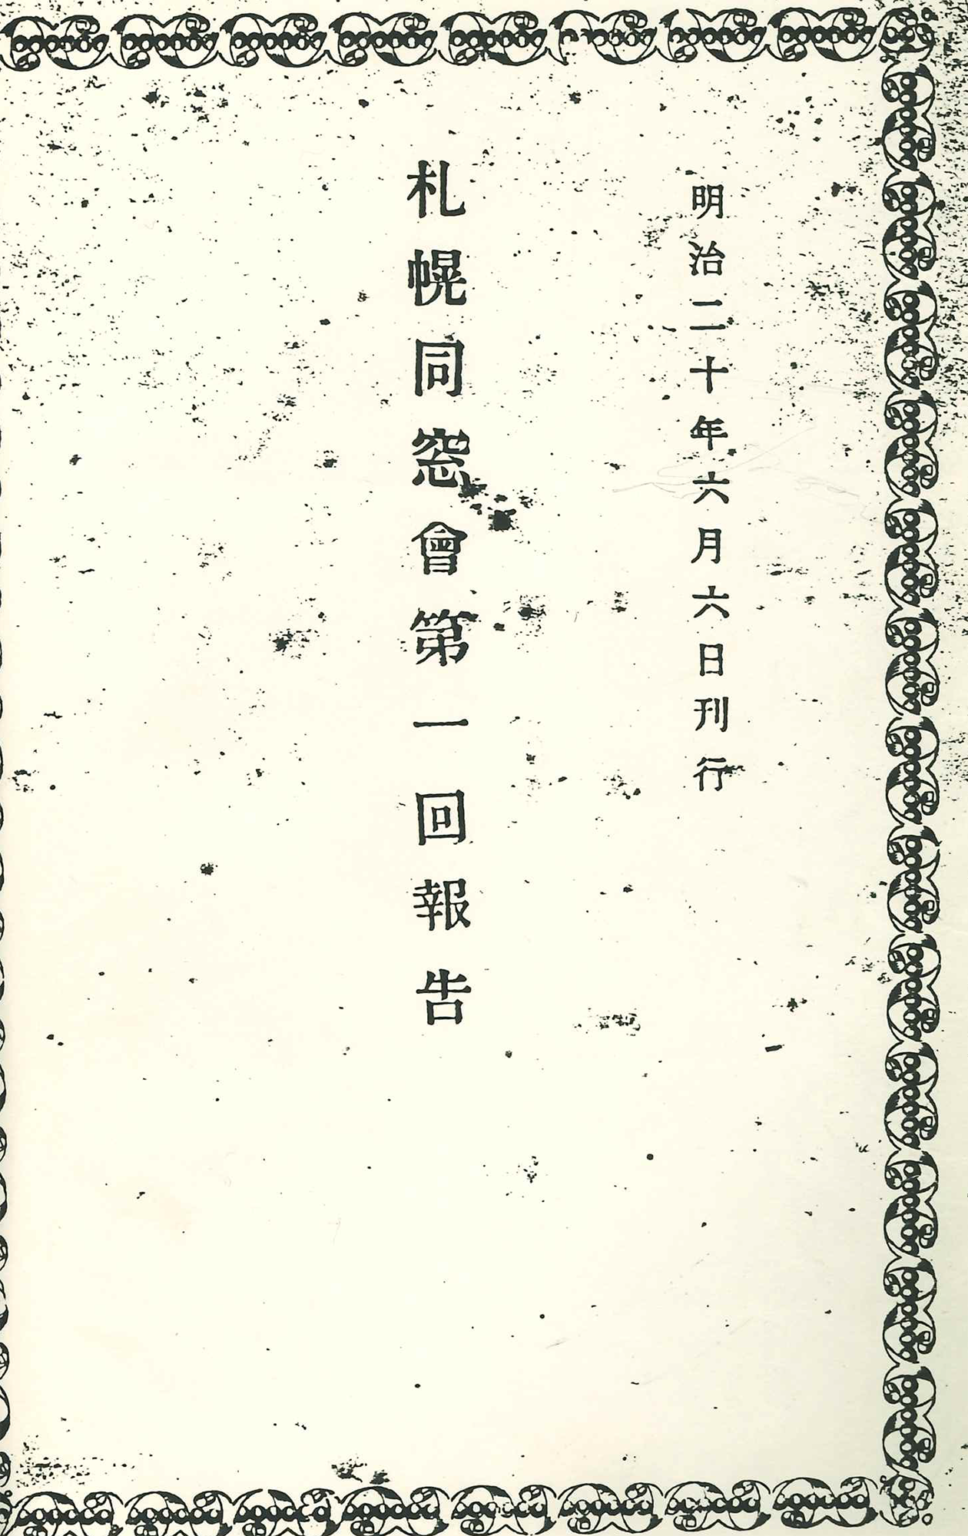 明治二十年六月六日刊行
札幌同窓會第一回報告